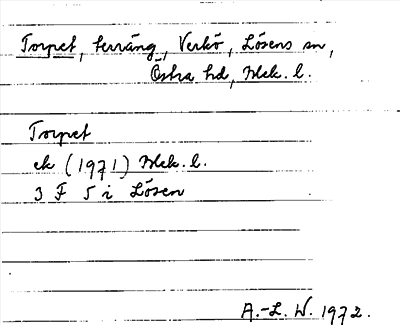 Torpet, terräng, Verkö, Lösens sn,
Östra hd, Blek. l.
Torpet
ek (1971) Blek. l.
3 F 5 i Lösen
A.-L. W. 1972.